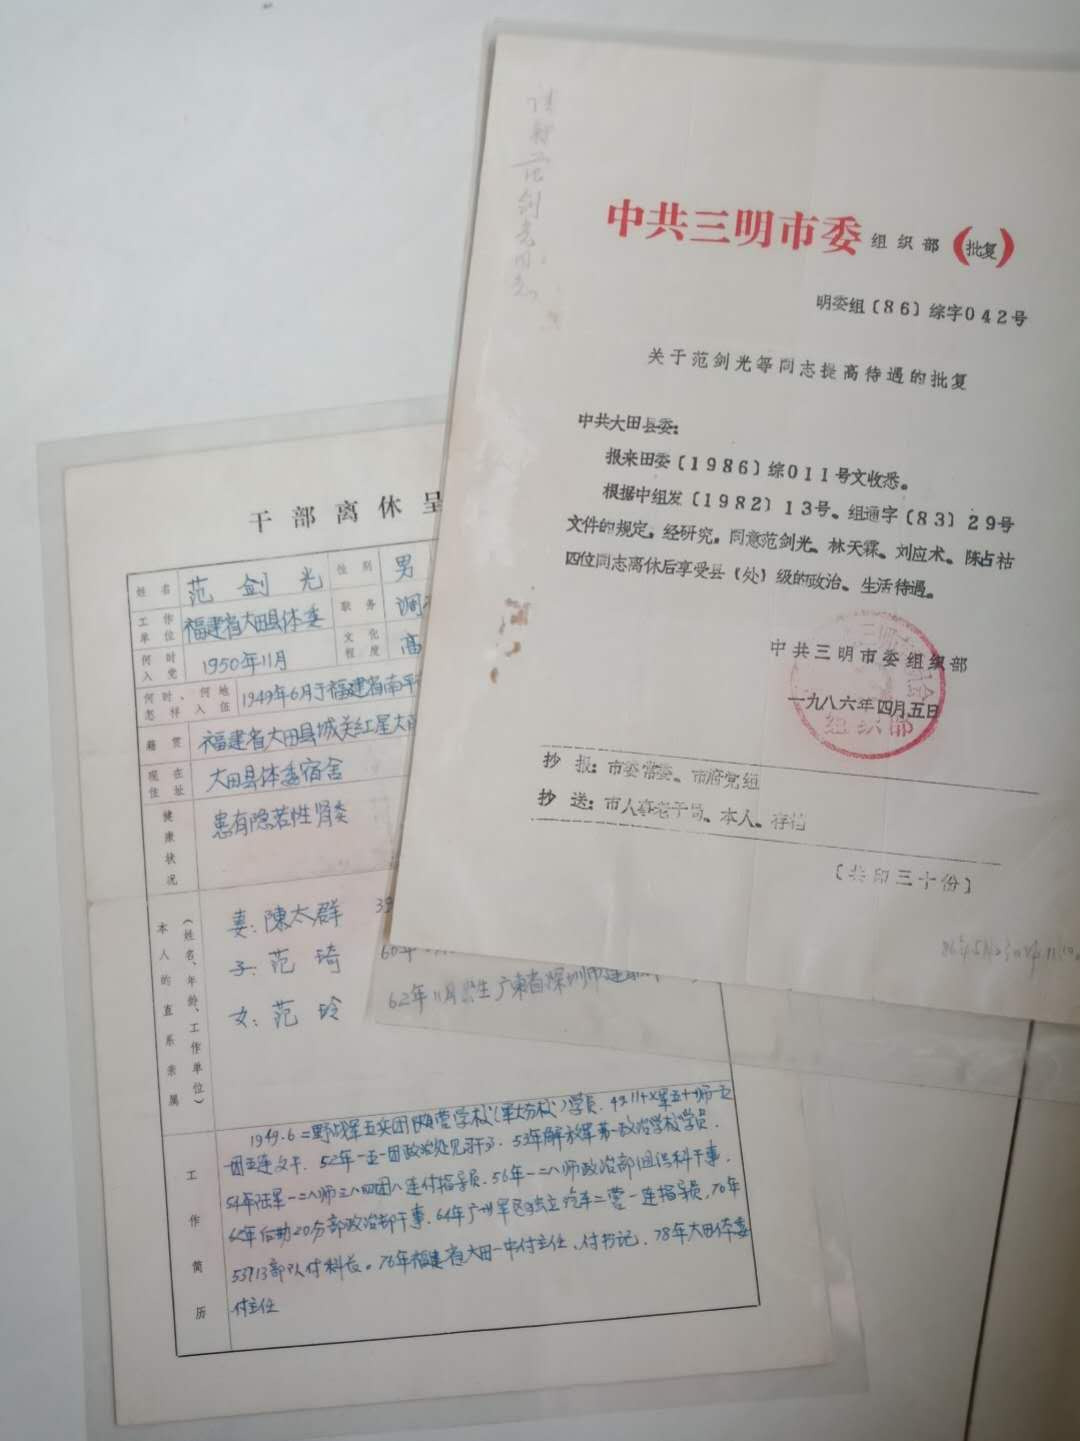 请转范剑光同志
中共三明市委组织部(批复)
明委组〔86〕综字042号
关于范剑光等同志提高待遇的批复
中共大田县委：
报来田委〔1986〕综011号文收悉。
根据中组发〔1982〕13号、组通字〔83〕29号
文件的规定，经研究，同意范剑光、林天霖、刘应术、陈占祜
四位同志离休后享受县（处）级的政治、生活待遇。
中共三明市委组织部
一九八六年四月五日
组织部
抄报：市委常委、市府党组
抄送：市人事老干局、本人、存档
〔共印三十份〕
干部离休呈
姓名 范剑光 性别 男
工作单位 福建省大田县体委 职务 调
何时入党 1950年11月 文化程度 高
何时、何地怎样入伍 1949年6月于福建省南平
籍贯 福建省大田县城关红星大
现在住址 大田县体委宿舍
健康状况 患有隐若性肾炎
本人的直系亲属（姓名、年龄、工作单位）
妻：陳太群 39
子：范琦 60年
女：范玲 62年11月出生广东省深圳市建
工作简历
1949.6二野战军五兵团随营学校（军大分校）学员.49.11十六军五十师一五
一团五连文干.52年一五一团政治处见习干事.53年解放军第一政治学校学员.
54年陆军一二八师三八四团八连付指导员.56年一二八师政治部组织科干事.
62年后勤20分部政治部干事.64年广州军区独立汽车二营一连指导员.70年
53713部队付科长。76年福建省大田一中付主任、付书记.78年大田体委
付主任